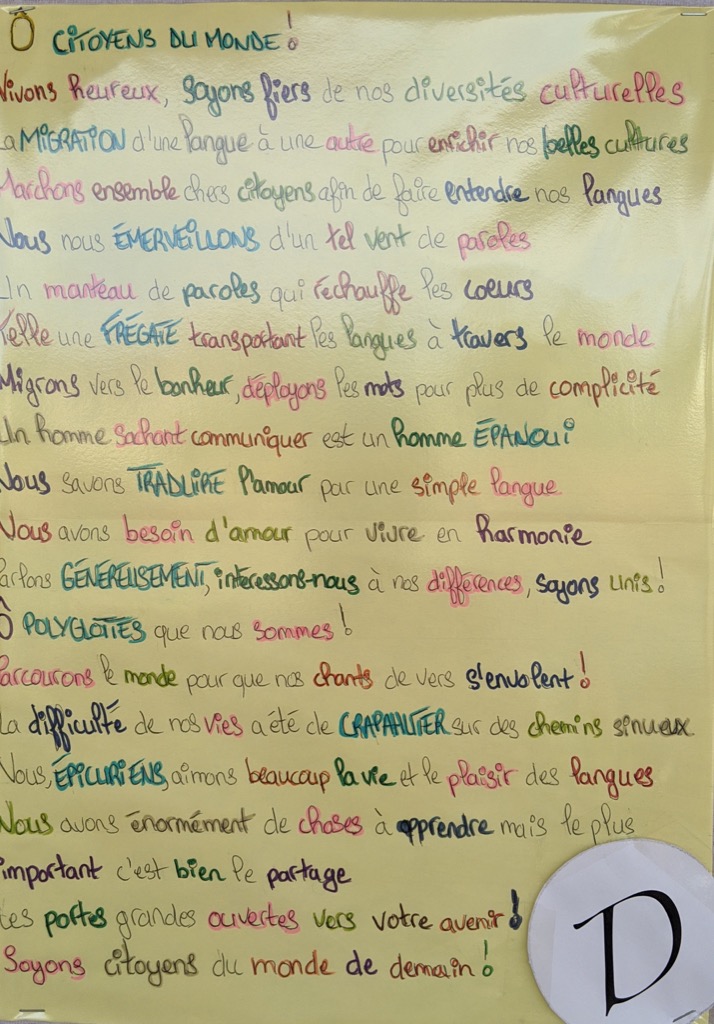 Ô CITOYENS DU MONDE !
Vivons heureux, soyons fiers de nos diversités culturelles
La MIGRATION d'une langue à une autre pour enrichir nos belles cultures
Marchons ensemble chers citoyens afin de faire entendre nos langues
Nous nous ÉMERVEILLONS d'un tel vent de paroles
Un manteau de paroles qui réchauffe les coeurs
Telle une FRÉGATE transportant les langues à travers le monde
Migrons vers le bonheur, déployons les mots pour plus de complicité
Un homme sachant communiquer est un homme ÉPANOUI
Nous savons TRADUIRE l'amour par une simple langue
Nous avons besoin d'amour pour vivre en harmonie
Parlons GÉNÉREUSEMENT, intéressons-nous à nos différences, soyons unis !
Ô POLYGLOTTES que nous sommes !
Parcourons le monde pour que nos chants de vers s'envolent !
La difficulté de nos vies a été de CRAPAHUTER sur des chemins sinueux.
Nous, ÉPICURIENS, aimons beaucoup la vie et le plaisir des langues
Nous avons énormément de choses à apprendre mais le plus
important c'est bien le partage
Les portes grandes ouvertes vers votre avenir !
Soyons citoyens du monde de demain !
D